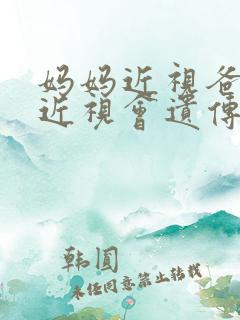 妈妈近視爸
近視會遺傳
韩圆
未经同意禁止转载